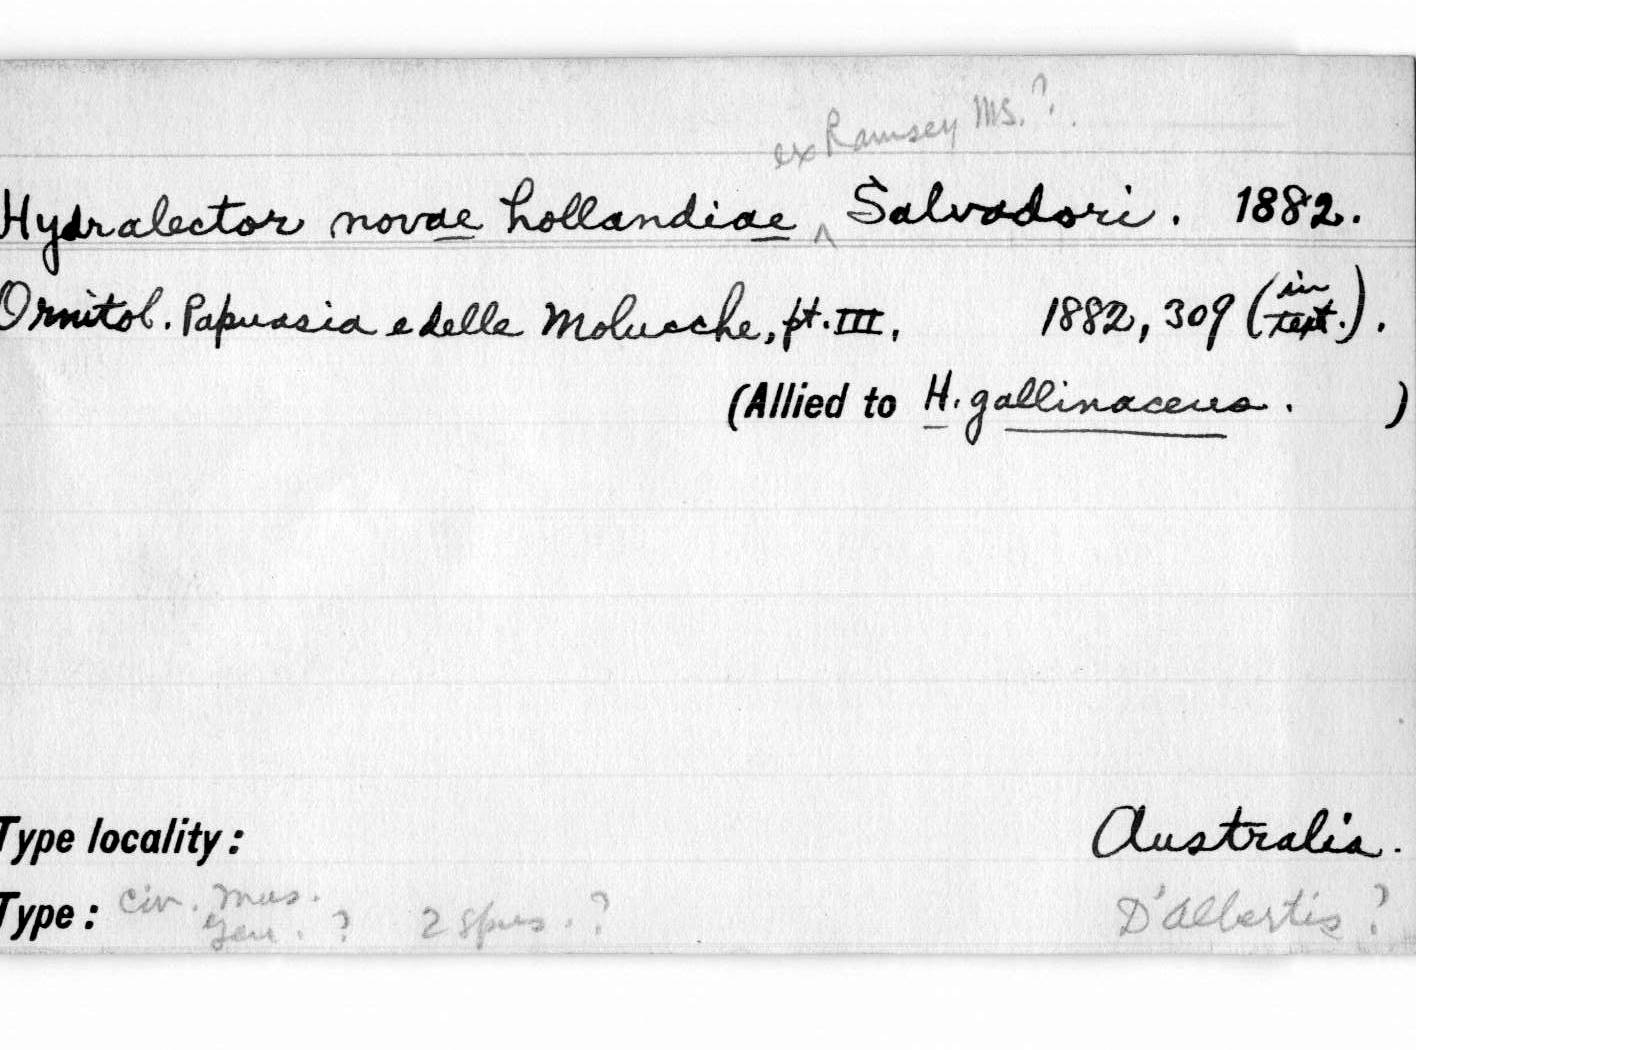 ex Ramsey MS. ?.
Hydralector novae hollandiae ^ Salvadori. 1882.
Ornitol. Papuasia e delle Molucche, pt. III, 1882, 309 (in text.).
(Allied to H. gallinaceus. )
Type locality: Australia.
Type: Civ. Mus. Gen. ? 2 spms. ? D'Albertis ?